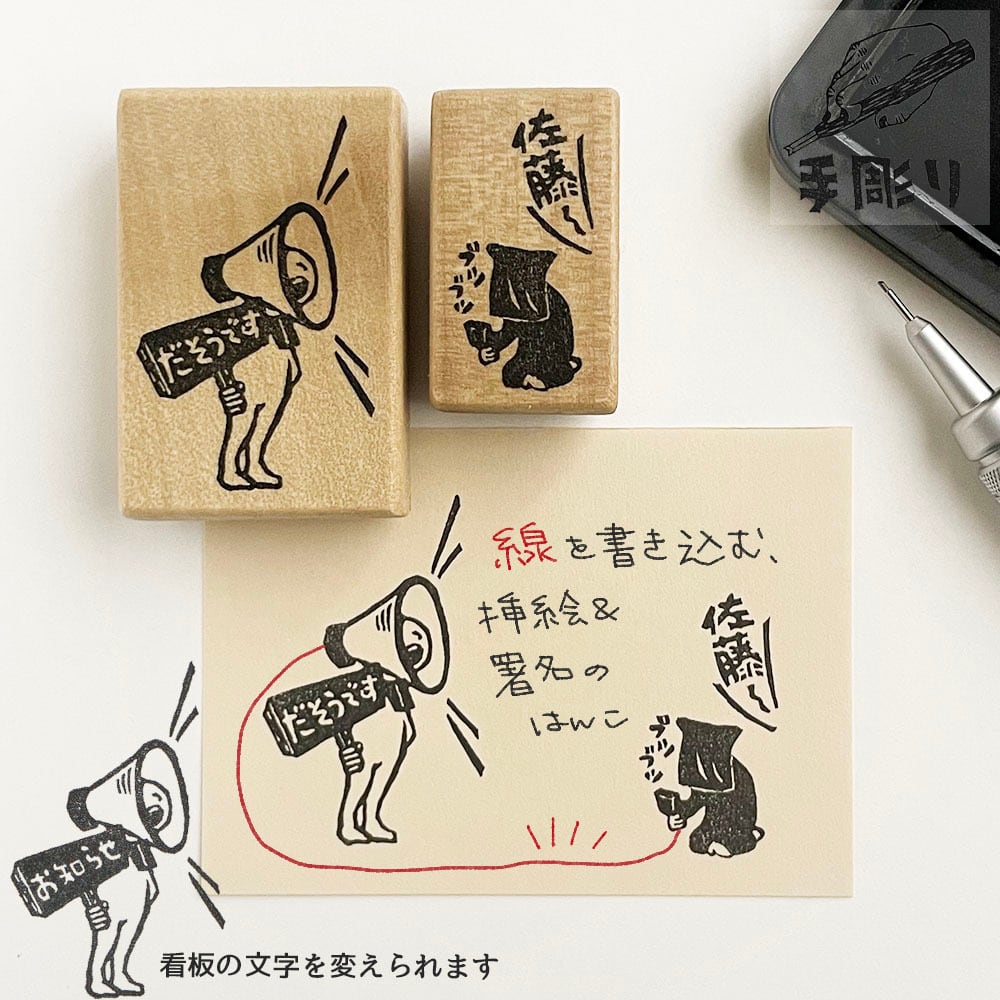 手彫り
佐藤〜
ブツブツ
だそうです
線を書き込む、
挿絵&
署名の
はんこ
佐藤〜
だそうです
ブツブツ
お知らせ
看板の文字を変えられます